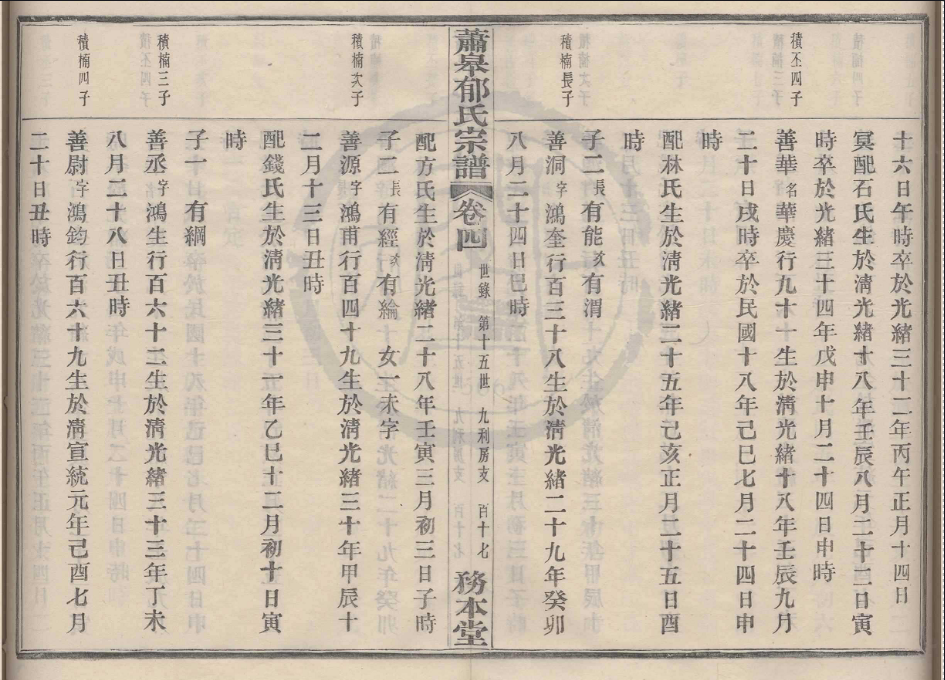 十六日午時卒於光緒三十二年丙午正月十四日
冥配石氏生於清光緒十八年壬辰八月二十二日寅
時卒於光緒三十四年戊申十月二十四日申時
積丕四子
善華名華慶行九十一生於清光緒十八年壬辰九月
二十日戌時卒於民國十八年己巳七月二十四日申
時
配林氏生於清光緒二十五年己亥正月二十五日酉
時
子二長有能次有渭
積楠長子
善洞字鴻奎行百三十八生於清光緒二十九年癸卯
八月二十四日巳時
蕭皋郁氏宗譜 卷四 世錄 第十五世 九利房支 百十七 務本堂
配方氏生於清光緒二十八年壬寅三月初三日子時
子二長有經次有綸 女一未字
積楠次子
善源字鴻甫行百四十九生於清光緒三十年甲辰十
二月十三日丑時
配錢氏生於清光緒三十一年乙巳十二月初十日寅
時
子一有綱
積楠三子
善丞字鴻生行百六十二生於清光緒三十三年丁未
八月二十八日丑時
積楠四子
善尉字鴻鈞行百六十九生於清宣統元年己酉七月
二十日丑時